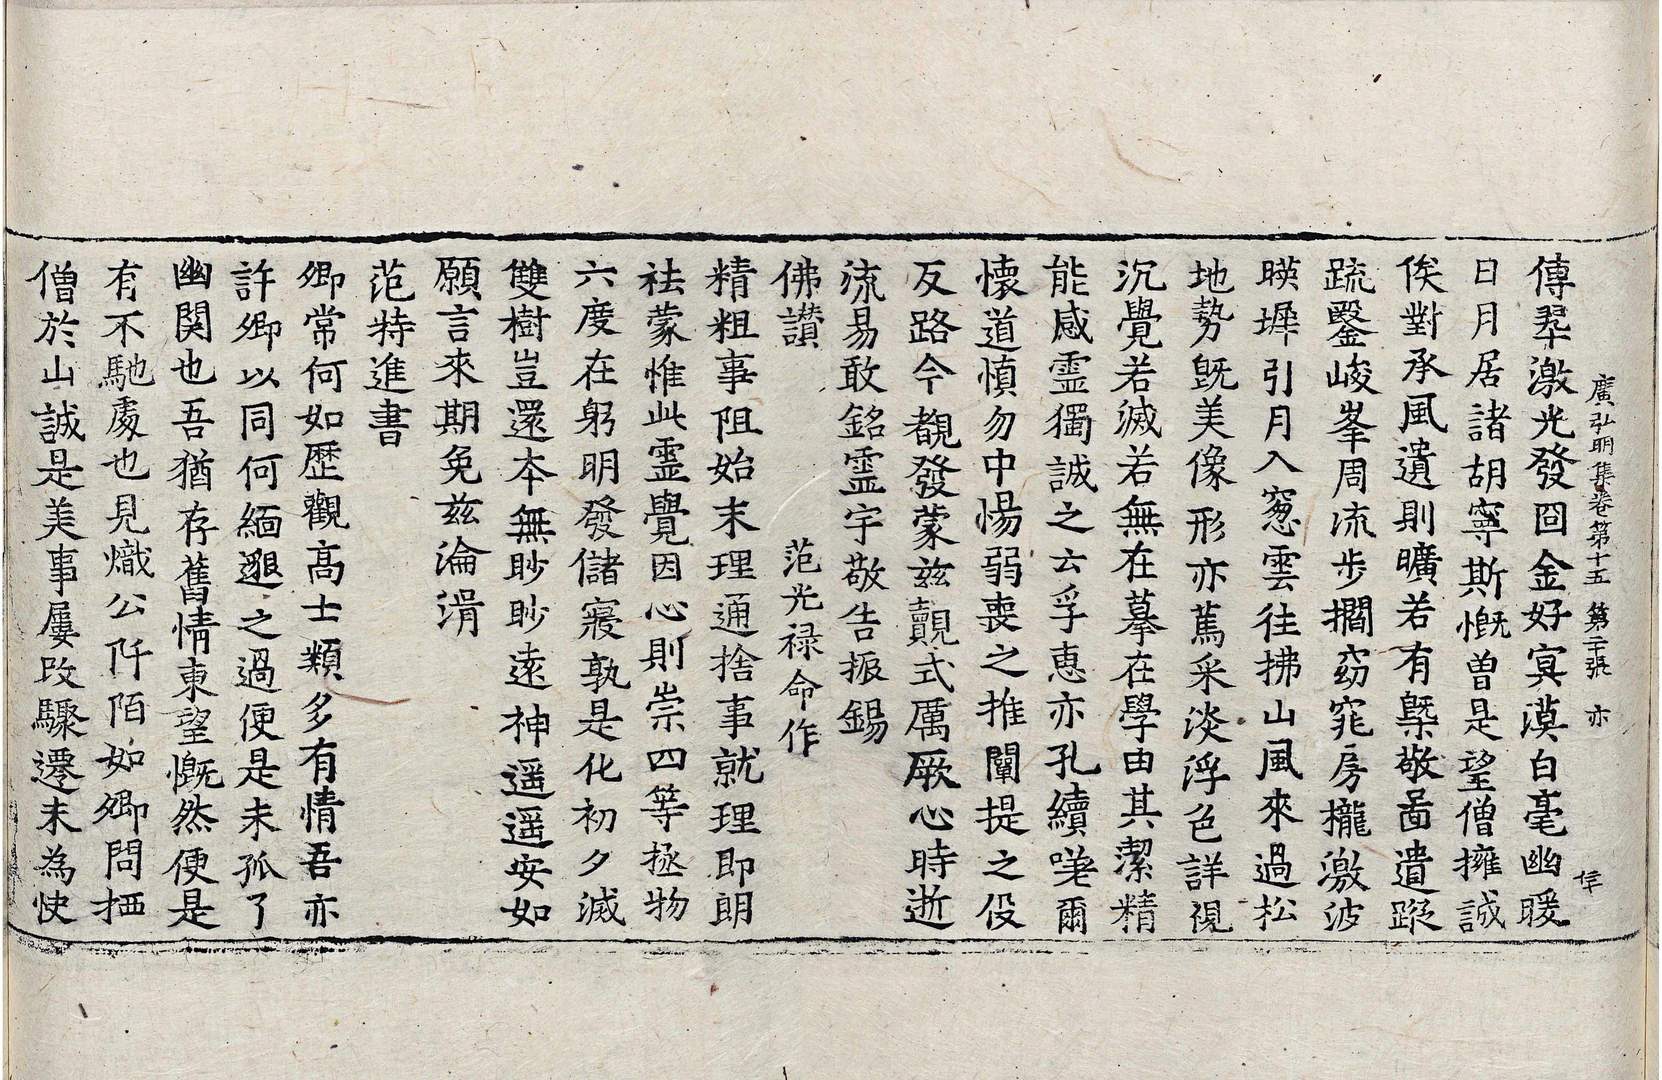 廣弘明集卷第十五 第二十張 亦
傳翠激光發囧金好冥漠白毫幽暖
日月居諸胡寧斯慨曽是望僧擁誠
俟對承風遺則曠若有槩敬啚遺蹤
疏鑿峻峯周流步擱窈窕房櫳激波
暎墀引月入窻雲往拂山風來過松
地勢旣美像形亦篤采淡浮色詳視
沉覺若滅若無在摹在學由其潔精
能感靈獨誠之云孚惠亦孔續嗟爾
懷道慎勿中惕弱喪之推闡提之伇
反路今覩發蒙茲覿式厲厥心時逝
流易敢銘靈宇敬告振錫
佛讃 范光禄命作
精粗事阻始末理通捨事就理即朗
祛蒙惟此靈覺因心則崇四等拯物
六度在躬明發儲寢孰是化初夕滅
雙樹豈還本無眇眇遠神遥遥安如
願言來期免兹淪湑
范特進書
卿常何如歷觀高士類多有情吾亦
許卿以同何緬邈之過便是未孤了
幽関也吾猶存舊情東望慨然便是
有不馳處也見熾公阡陌如卿問栖
僧於山誠是美事屢改驟遷未為快